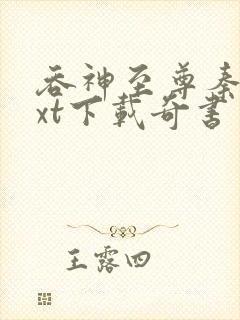 吞神至尊秦
xt下載奇書
王露四